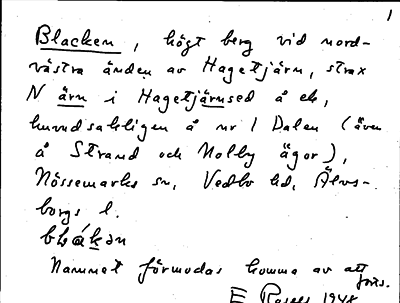 1
Blacken, högt berg vid nord-
västra änden av Hagetjärn, strax
N ärn i Hagetjärnsed å ek,
huvudsakligen å nr 1 Dalen (även
å Strand och Nolby ägor),
Nössemarks sn, Vedbo hd, Älvs-
borgs l.
Namnet förmodas komma av att
fors.
E 1948